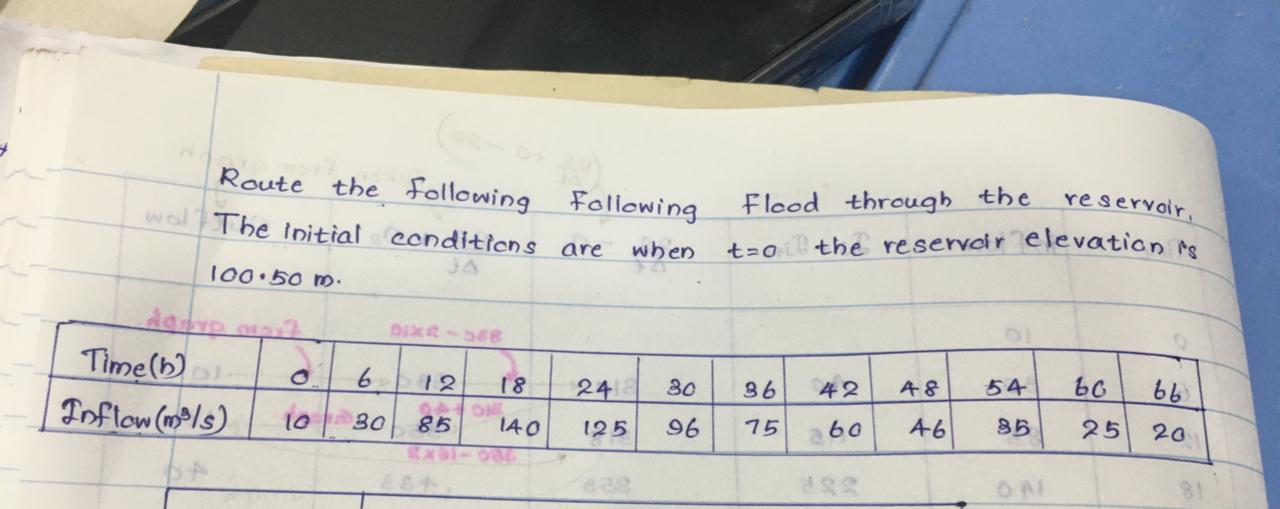 Route the following following Flood through the reservoir.
The initial conditions are when t=0 the reservoir elevation is
100.50 m.
Time(h) 0 6 12 18 24 30 36 42 48 54 60 66
Inflow(m³/s) 10 30 85 140 125 96 75 60 46 35 25 20